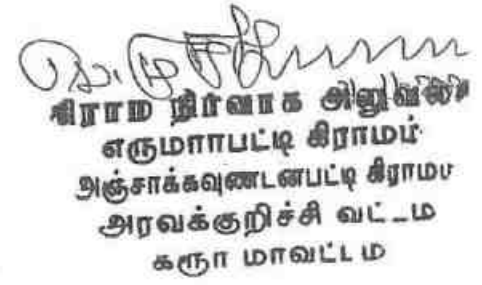 கிராம நிர்வாக அலுவலர்
எருமாரபட்டி கிராமம்
அஞ்சாக்கவுணடனபட்டி கிராமம
அரவக்குறிச்சி வட்டம
கரூா மாவட்டம